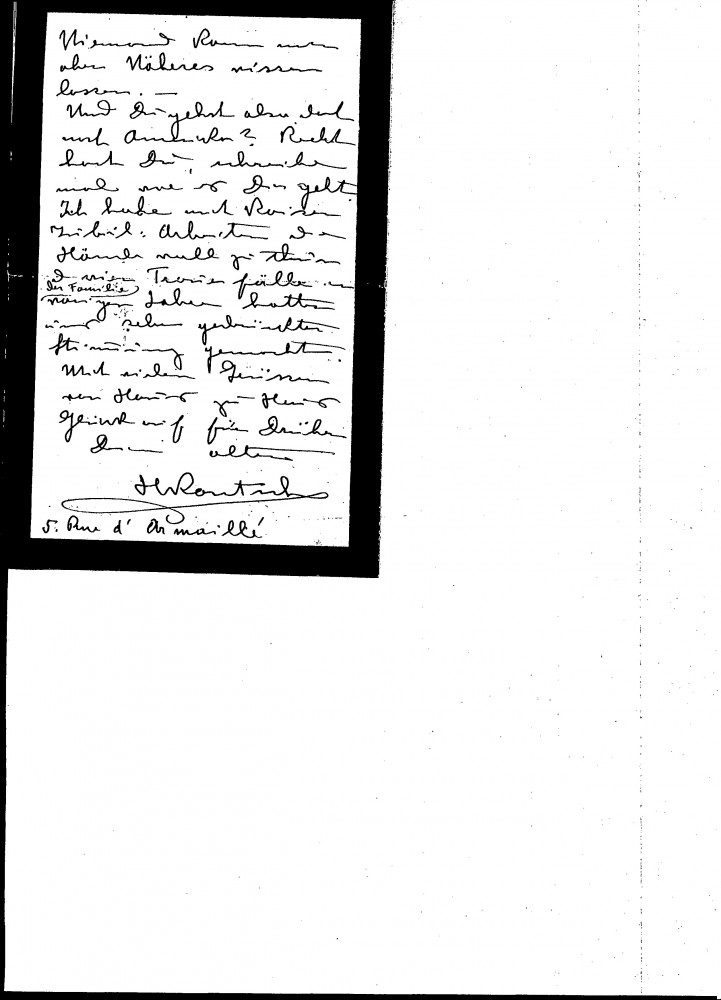 Niemand kann mir
aber Näheres wissen
lassen. —
Und Du gehst also doch
nach Amerika? Recht
hast Du, schreibe
mal wie es Dir geht.
Ich habe mit
Arbeiten die
Hände voll zu thun
Trauerfälle in
der Familie
vorigen Jahre hatten
uns sehr gedrückter
Stimmung gemacht.
Mit vielen Grüssen
von Haus zu Haus
Glück auf für Drüben
Dein alter
5. Rue d'Armaillé